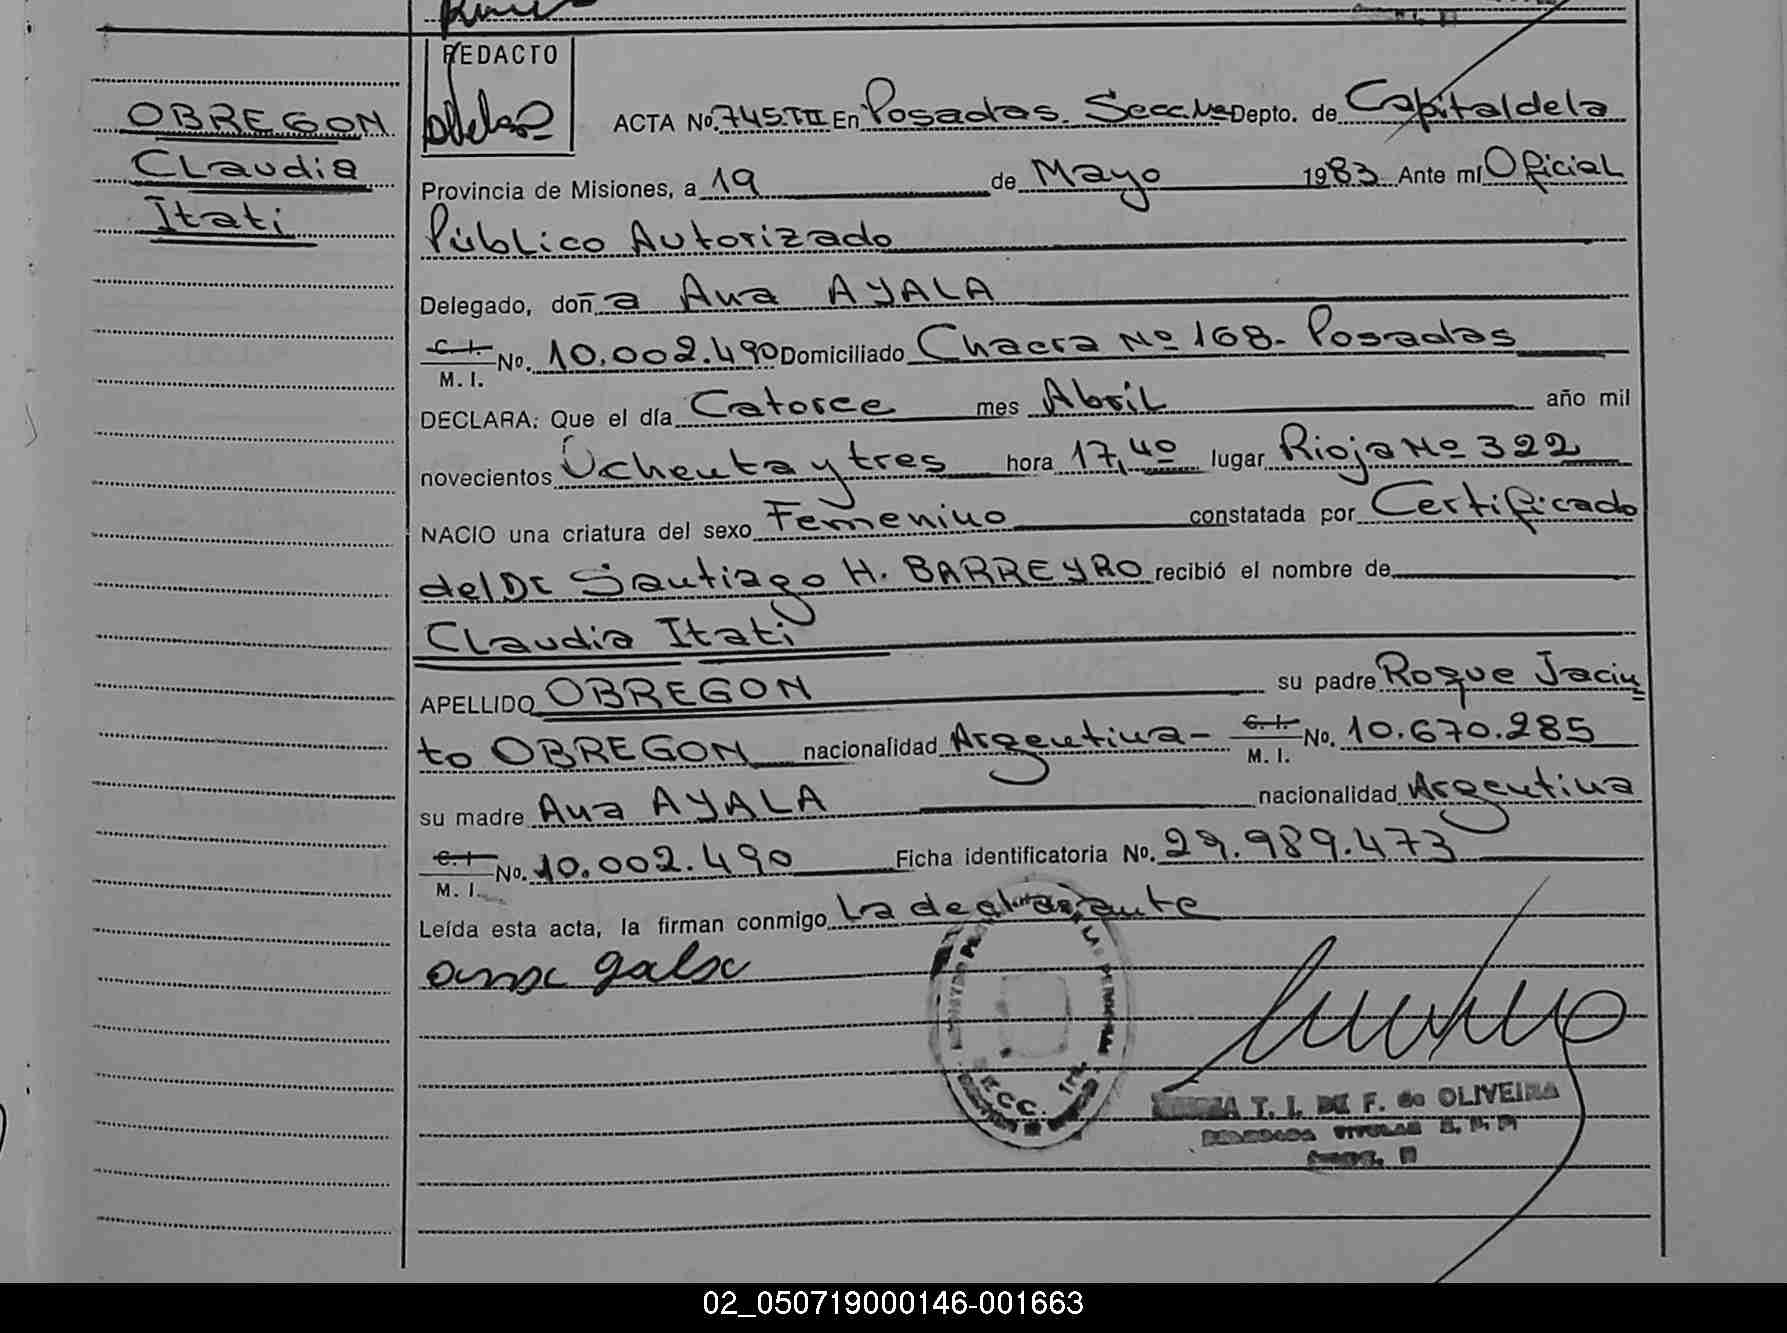 REDACTO
OBREGON
Claudia
Itati
ACTA No. 745 TII En Posadas. Secc. Depto. de Capital de la
Provincia de Misiones, a 19 de Mayo 1983 Ante mi Oficial
Público Autorizado
Delegado, doña Ana AYALA
C. I. M. I. No. 10.002.490 Domiciliado Chacra Nº 168. Posadas
DECLARA: Que el día Catorce mes Abril año mil
novecientos Ochenta y tres hora 17,40 lugar Rioja Nº 322
NACIO una criatura del sexo Femenino constatada por Certificado
del Dr Santiago H. BARREYRO recibió el nombre de
Claudia Itati
APELLIDO OBREGON su padre Roque Jacin
to OBREGON nacionalidad Argentina- C. I. M. I. No. 10.670.285
su madre Ana AYALA nacionalidad Argentina
C. I. M. I. No. 10.002.490 Ficha identificatoria No. 29.989.473
Leída esta acta, la firman conmigo La declarante
T. I. DE F. de OLIVEIRA
02_050719000146-001663